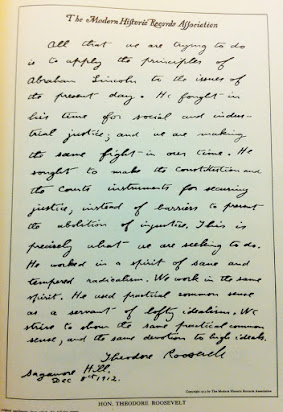 The Modern Historic Records Association
All that we are trying to do
is to apply the principles of
Abraham Lincoln to the issues of
the present day. He fought in
his time for social and indus-
trial justice; and we are making
the same fight in our time. He
sought to make the constitution and
the courts instruments for securing
justice, instead of barriers to prevent
the abolition of injustice. This is
precisely what we are seeking to do.
He worked in a spirit of sane and
tempered radicalism. We work in the same
spirit. He used practical common sense
as a servant of lofty idealism. We
strive to show the same practical common
sense, and the same devotion to high ideals.
Theodore Roosevelt
Sagamore Hill.
Dec 8th 1912.
Copyright 1913 by The Modern Historic Records Association
HON. THEODORE ROOSEVELT